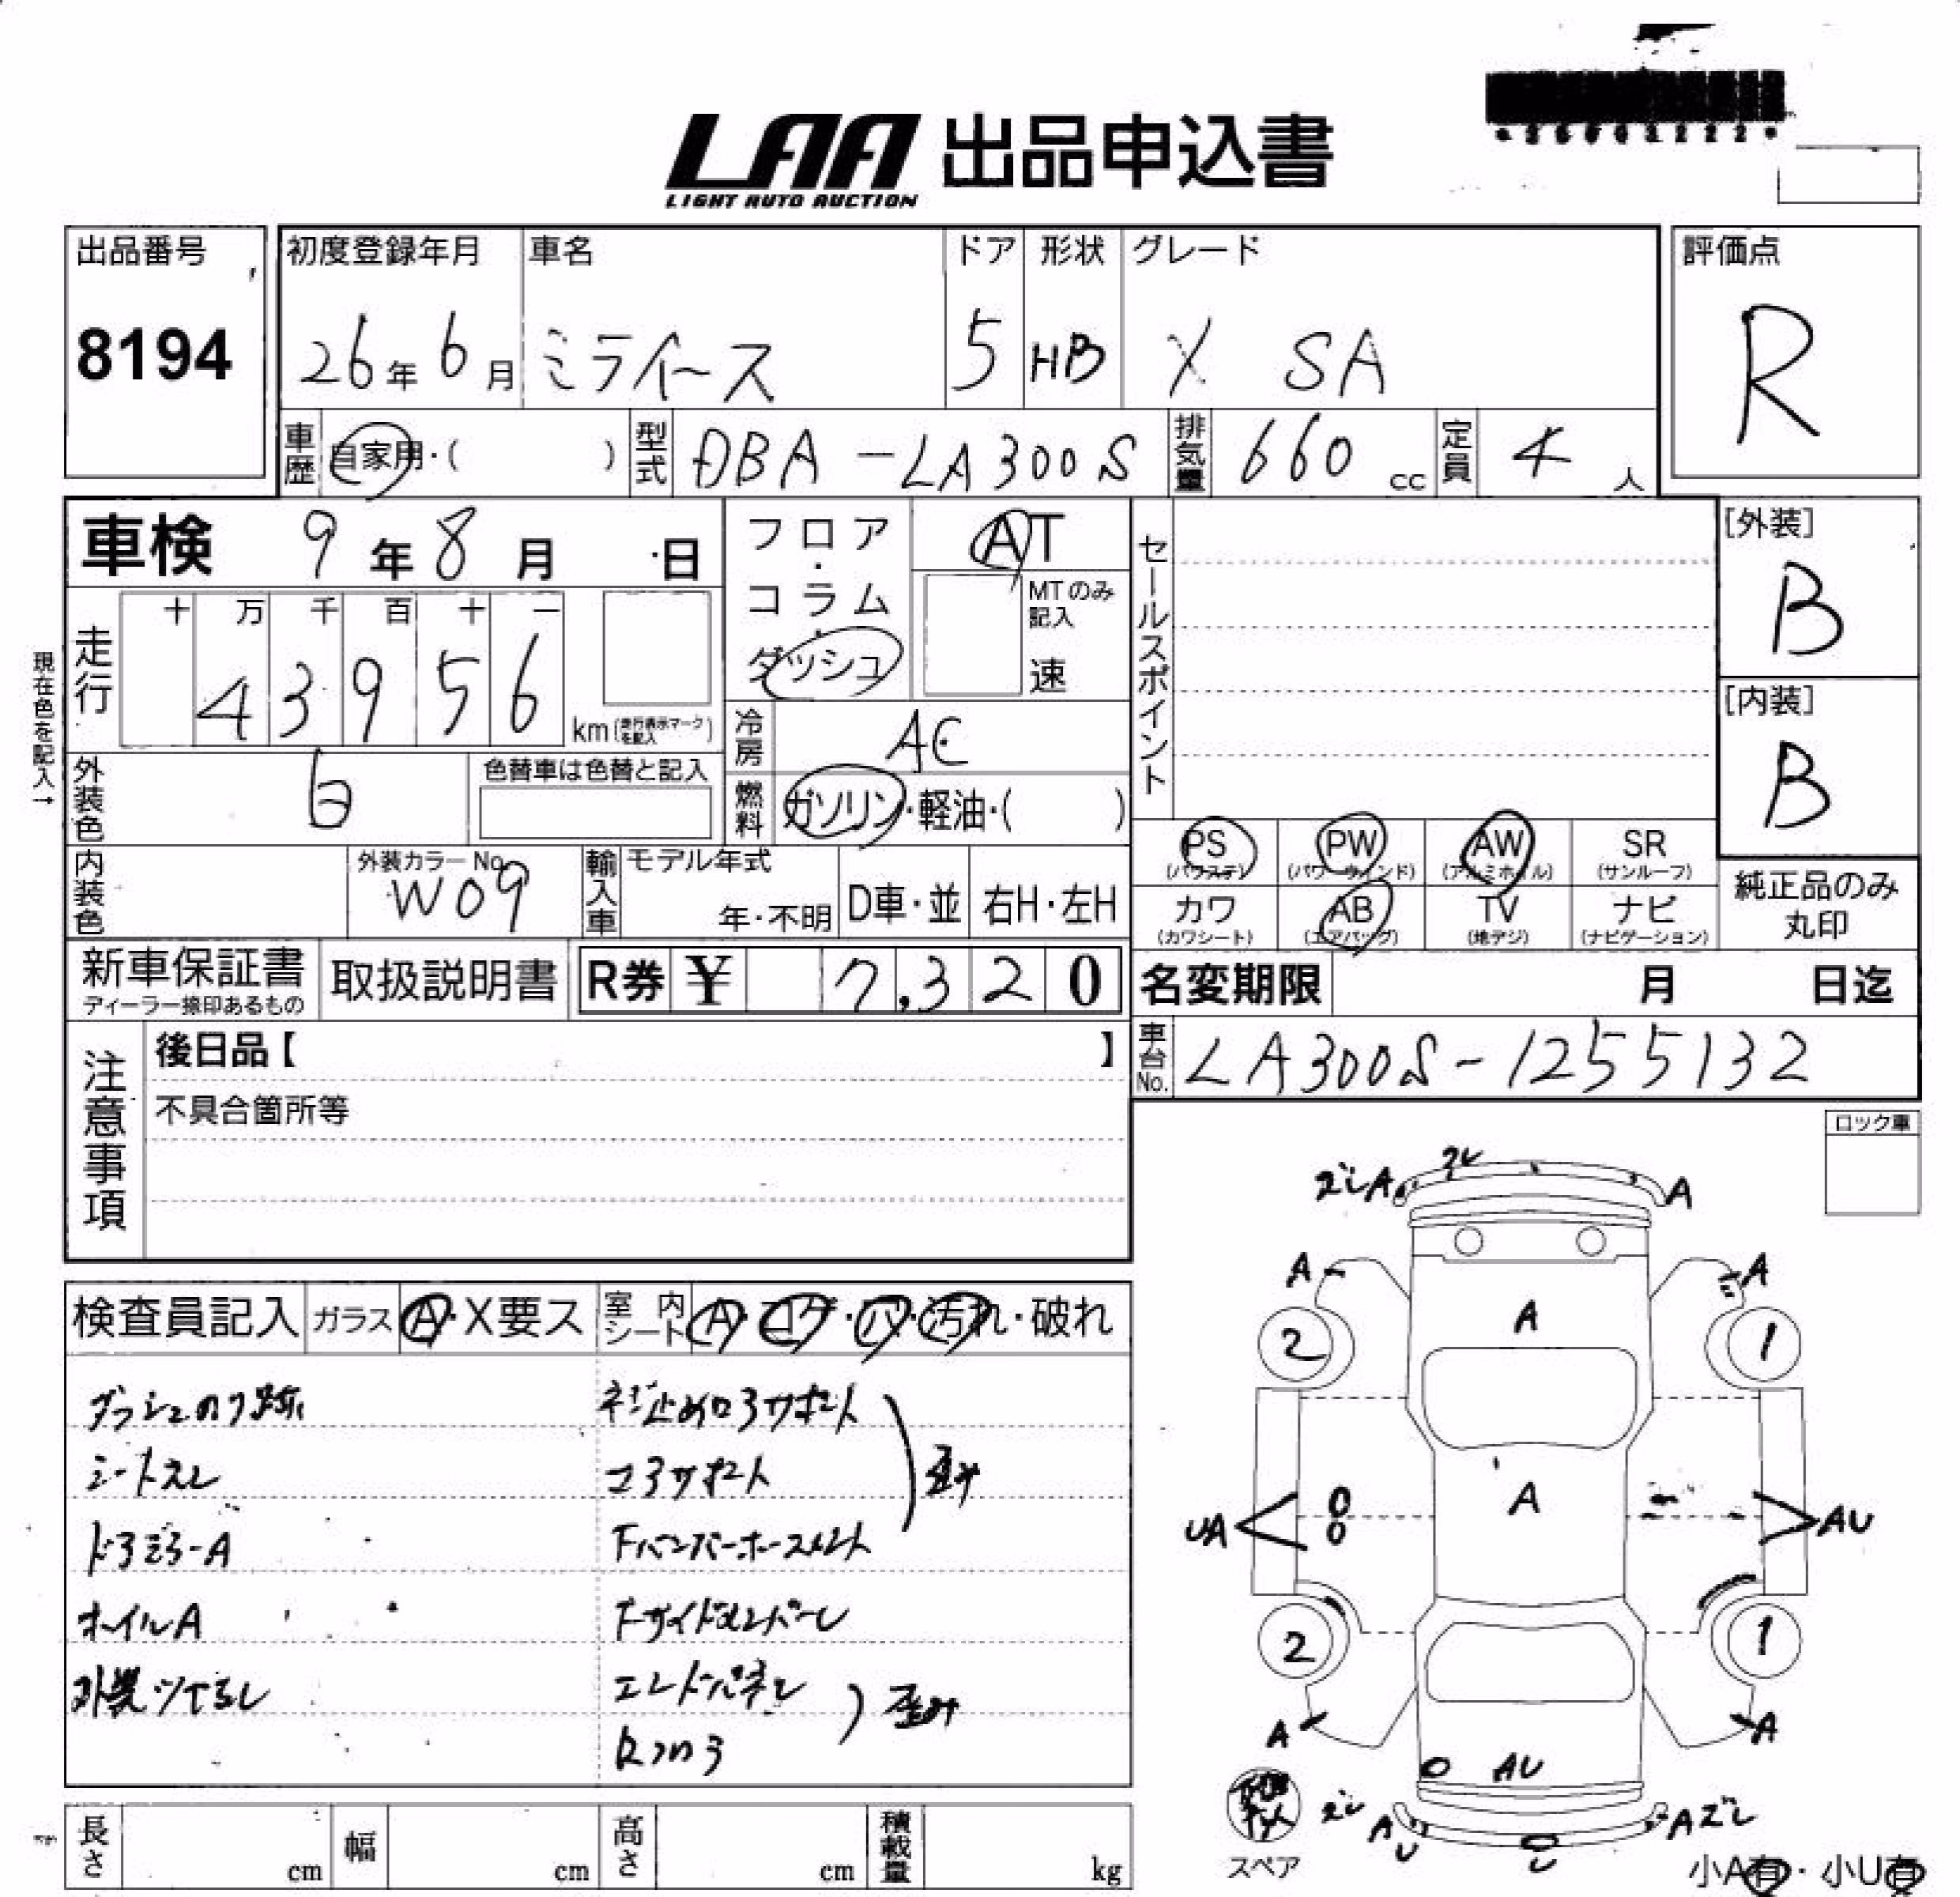 LAA 出品申込書
LIGHT AUTO AUCTION
出品番号
8194
初度登録年月
26年 6月
車名
ミライース
ドア
5
形状
HB
グレード
X SA
評価点
R
車歴 自家用・( )
型式 DBA-LA300S
排気量 660 cc
定員 4 人
車検 9年 8月 日
フロア・コラム・ダッシュ
AT
MTのみ記入
速
セールスポイント
[外装]
B
[内装]
B
現在色を記入→
走行
十 万 千 百 十 一
4 3 9 5 6
km (走行表示マークを記入)
冷房 AC
燃料 ガソリン・軽油・( )
外装色 白
色替車は色替と記入
内装色
外装カラーNo.
W09
輸入車
モデル年式
年・不明
D車・並
右H・左H
PS (パワステ)
PW (パワーウインド)
AW (アルミホイル)
SR (サンルーフ)
カワ (カワシート)
AB (エアバッグ)
TV (地デジ)
ナビ (ナビゲーション)
純正品のみ
丸印
新車保証書
ディーラー捺印あるもの
取扱説明書
R券 ¥ 7,320
名変期限 月 日迄
車台No. LA300S-1255132
注意事項
後日品【 】
不具合箇所等
ロック車
検査員記入
ガラス A・X要ス
室内シート A・コゲ・穴・汚れ・破れ
ダッシュのり跡
ネジ止めコアサポート
シートスレ
コアサポート
歪み
ドアミラーA
ホイルA
外装ツヤなし
エンドパネル
歪み
Rフロア
ズレA
A
A
A
A
2
1
A
UA
AU
2
1
A
A
AU
ズレ
A
U
U
Aズレ
スペア
小A有・小U有
長さ cm
幅 cm
高さ cm
積載量 kg